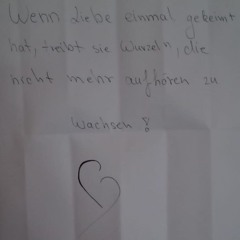 Wenn Liebe einmal gekeimt
hat, treibt sie Wurzeln, die
nicht mehr aufhören zu
wachsen!